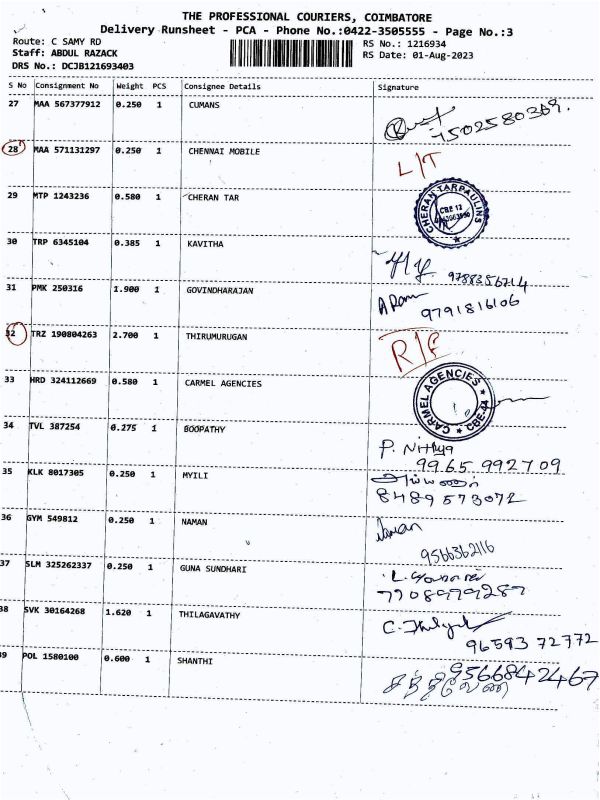 THE PROFESSIONAL COURIERS, COIMBATORE
Delivery Runsheet - PCA - Phone No.:0422-3505555 - Page No.:3
Route: C SAMY RD RS No.: 1216934
Staff: ABDUL RAZACK RS Date: 01-Aug-2023
DRS No.: DCJB121693403
S No Consignment No Weight PCS Consignee Details Signature
27 MAA 567377912 0.250 1 CUMANS 7502580369.
28 MAA 571131297 0.250 1 CHENNAI MOBILE L/T
29 MTP 1243236 0.580 1 CHERAN TAR CHERAN TARPAULINS CBE 12
30 TRP 6345104 0.385 1 KAVITHA 9788356714
31 PMK 250316 1.900 1 GOVINDHARAJAN A Ram
9791816106
32 TRZ 190804263 2.700 1 THIRUMURUGAN
33 HRD 324112669 0.580 1 CARMEL AGENCIES CARMEL AGENCIES CBE-44
34 TVL 387254 0.275 1 BOOPATHY P. Nithya
9965 992709
35 KLK 8017305 0.250 1 MYILI
8489573072
36 GYM 549812 0.250 1 NAMAN Naman
9566362116
37 SLM 325262337 0.250 1 GUNA SUNDHARI
7708979287
38 SVK 30164268 1.620 1 THILAGAVATHY
96593 72772
39 POL 1580100 0.600 1 SHANTHI 9566842467